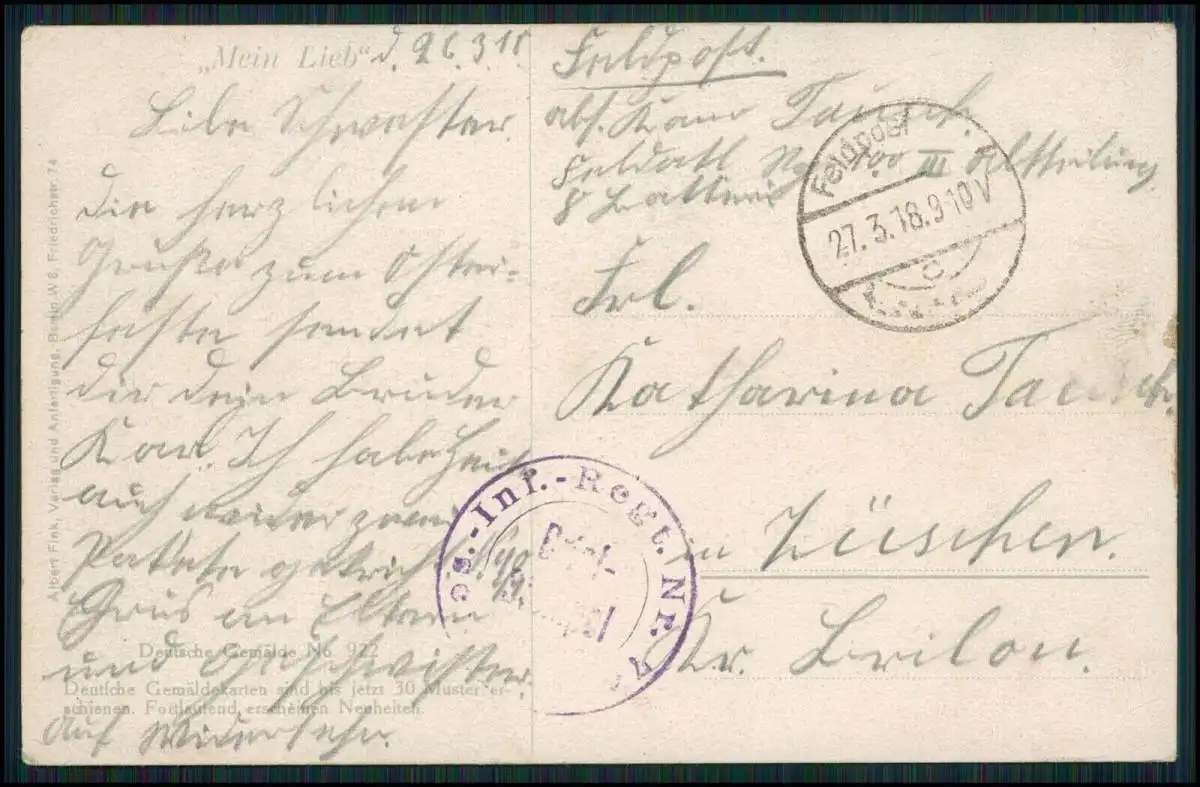 „Mein Lieb“
d. 26.3.18
Libe Schwester.
die herzlichen
Grüße zum Oster-
feste sendet
dir dein Bruder
Karl. Ich habe Heut
auch wider zwei
Pakete
Grus an Eltern
und Geschwister.
auf Widersehn.
Deutsche Gemälde No. 922
Deutsche Gemäldekarten sind bis jetzt 30 Muster er-
schienen. Fortlaufend erscheinen Neuheiten.
Albert Fink, Verlag und Anfertigung, Berlin W 8, Friedrichstr. 74
Feldpost.
abs. Kano
Feldartl III Abtheilung
8 Batterie
Feldpost
27.3.18.9-10V
c
Frl.
Katharina
in Züschen.
Kr. Brilon.
es.-Inf.-Regt. Nr.
Brief-